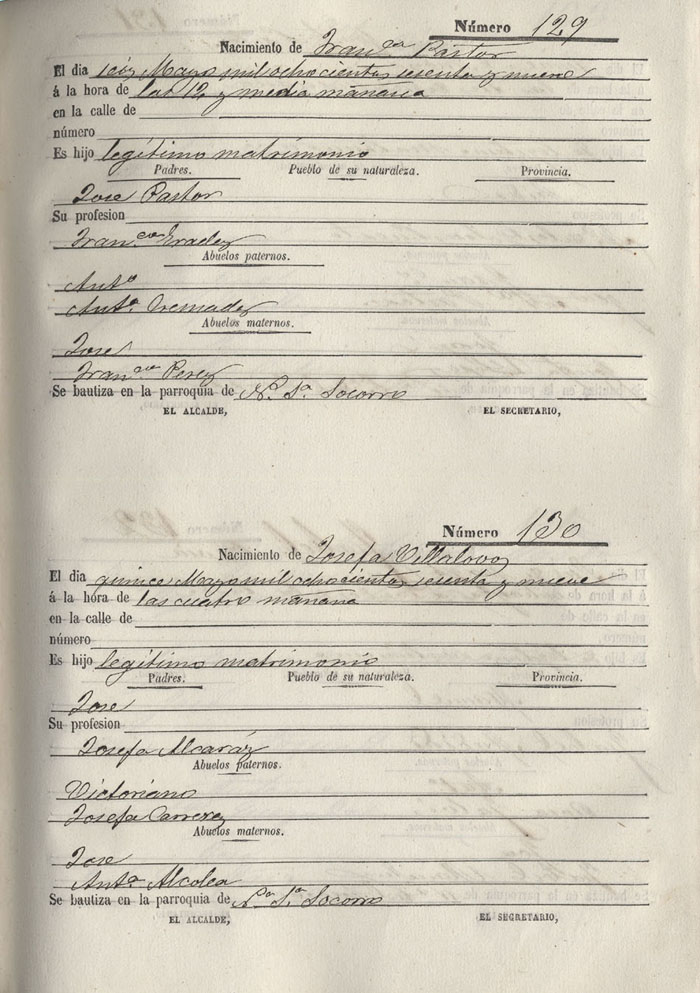 Número 129
Nacimiento de Fran.ca Pastor
El dia seis Mayo mil ochocientos sesenta y nueve
á la hora de las 12 y media mañana
en la calle de
número
Es hijo legítimo matrimonio
Padres. Pueblo de su naturaleza. Provincia.
Jose Pastor
Su profesion
Fran.ca
Abuelos paternos.
Ant.o
Ant.a
Abuelos maternos.
Jose
Fran.ca Perez
Se bautiza en la parroquia de N.a S.a Socorro
EL ALCALDE, EL SECRETARIO,
Número 130
Nacimiento de Josefa Villalovos
El dia quince Mayo mil ochocientos sesenta y nueve
á la hora de las cuatro mañana
en la calle de
número
Es hijo legítimo matrimonio
Padres. Pueblo de su naturaleza. Provincia.
Jose
Su profesion
Josefa Alcaráz
Abuelos paternos.
Victoriano
Josefa
Abuelos maternos.
Jose
Ant.a Alcolea
Se bautiza en la parroquia de N.a S.a Socorro
EL ALCALDE, EL SECRETARIO,